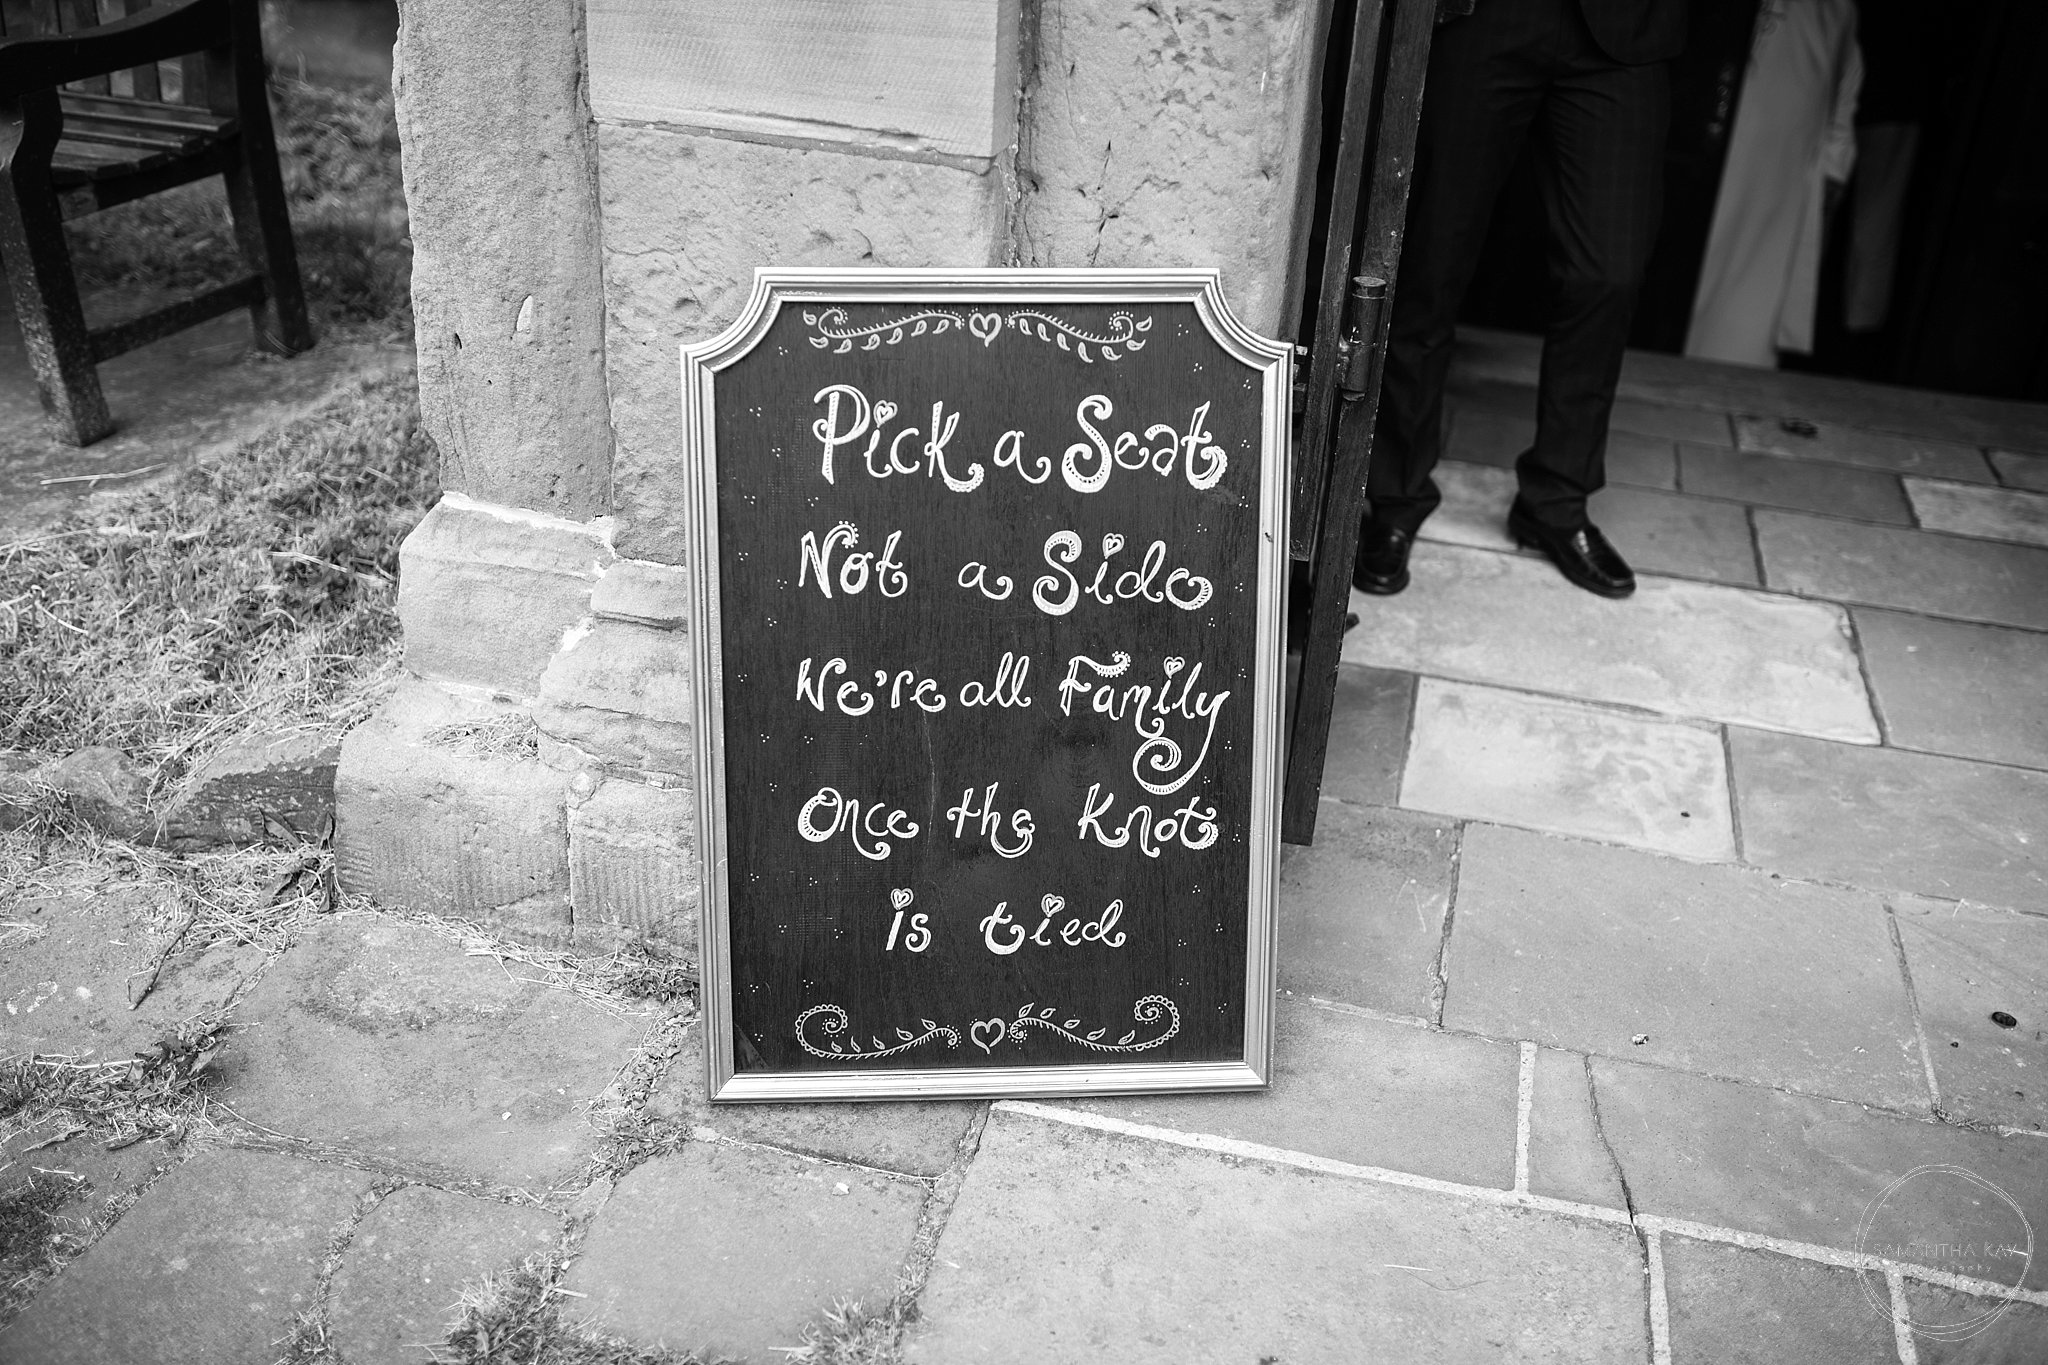 Pick a Seat
Not a Side
We're all Family
Once the Knot
is tied
SAMANTHA KAY
photography